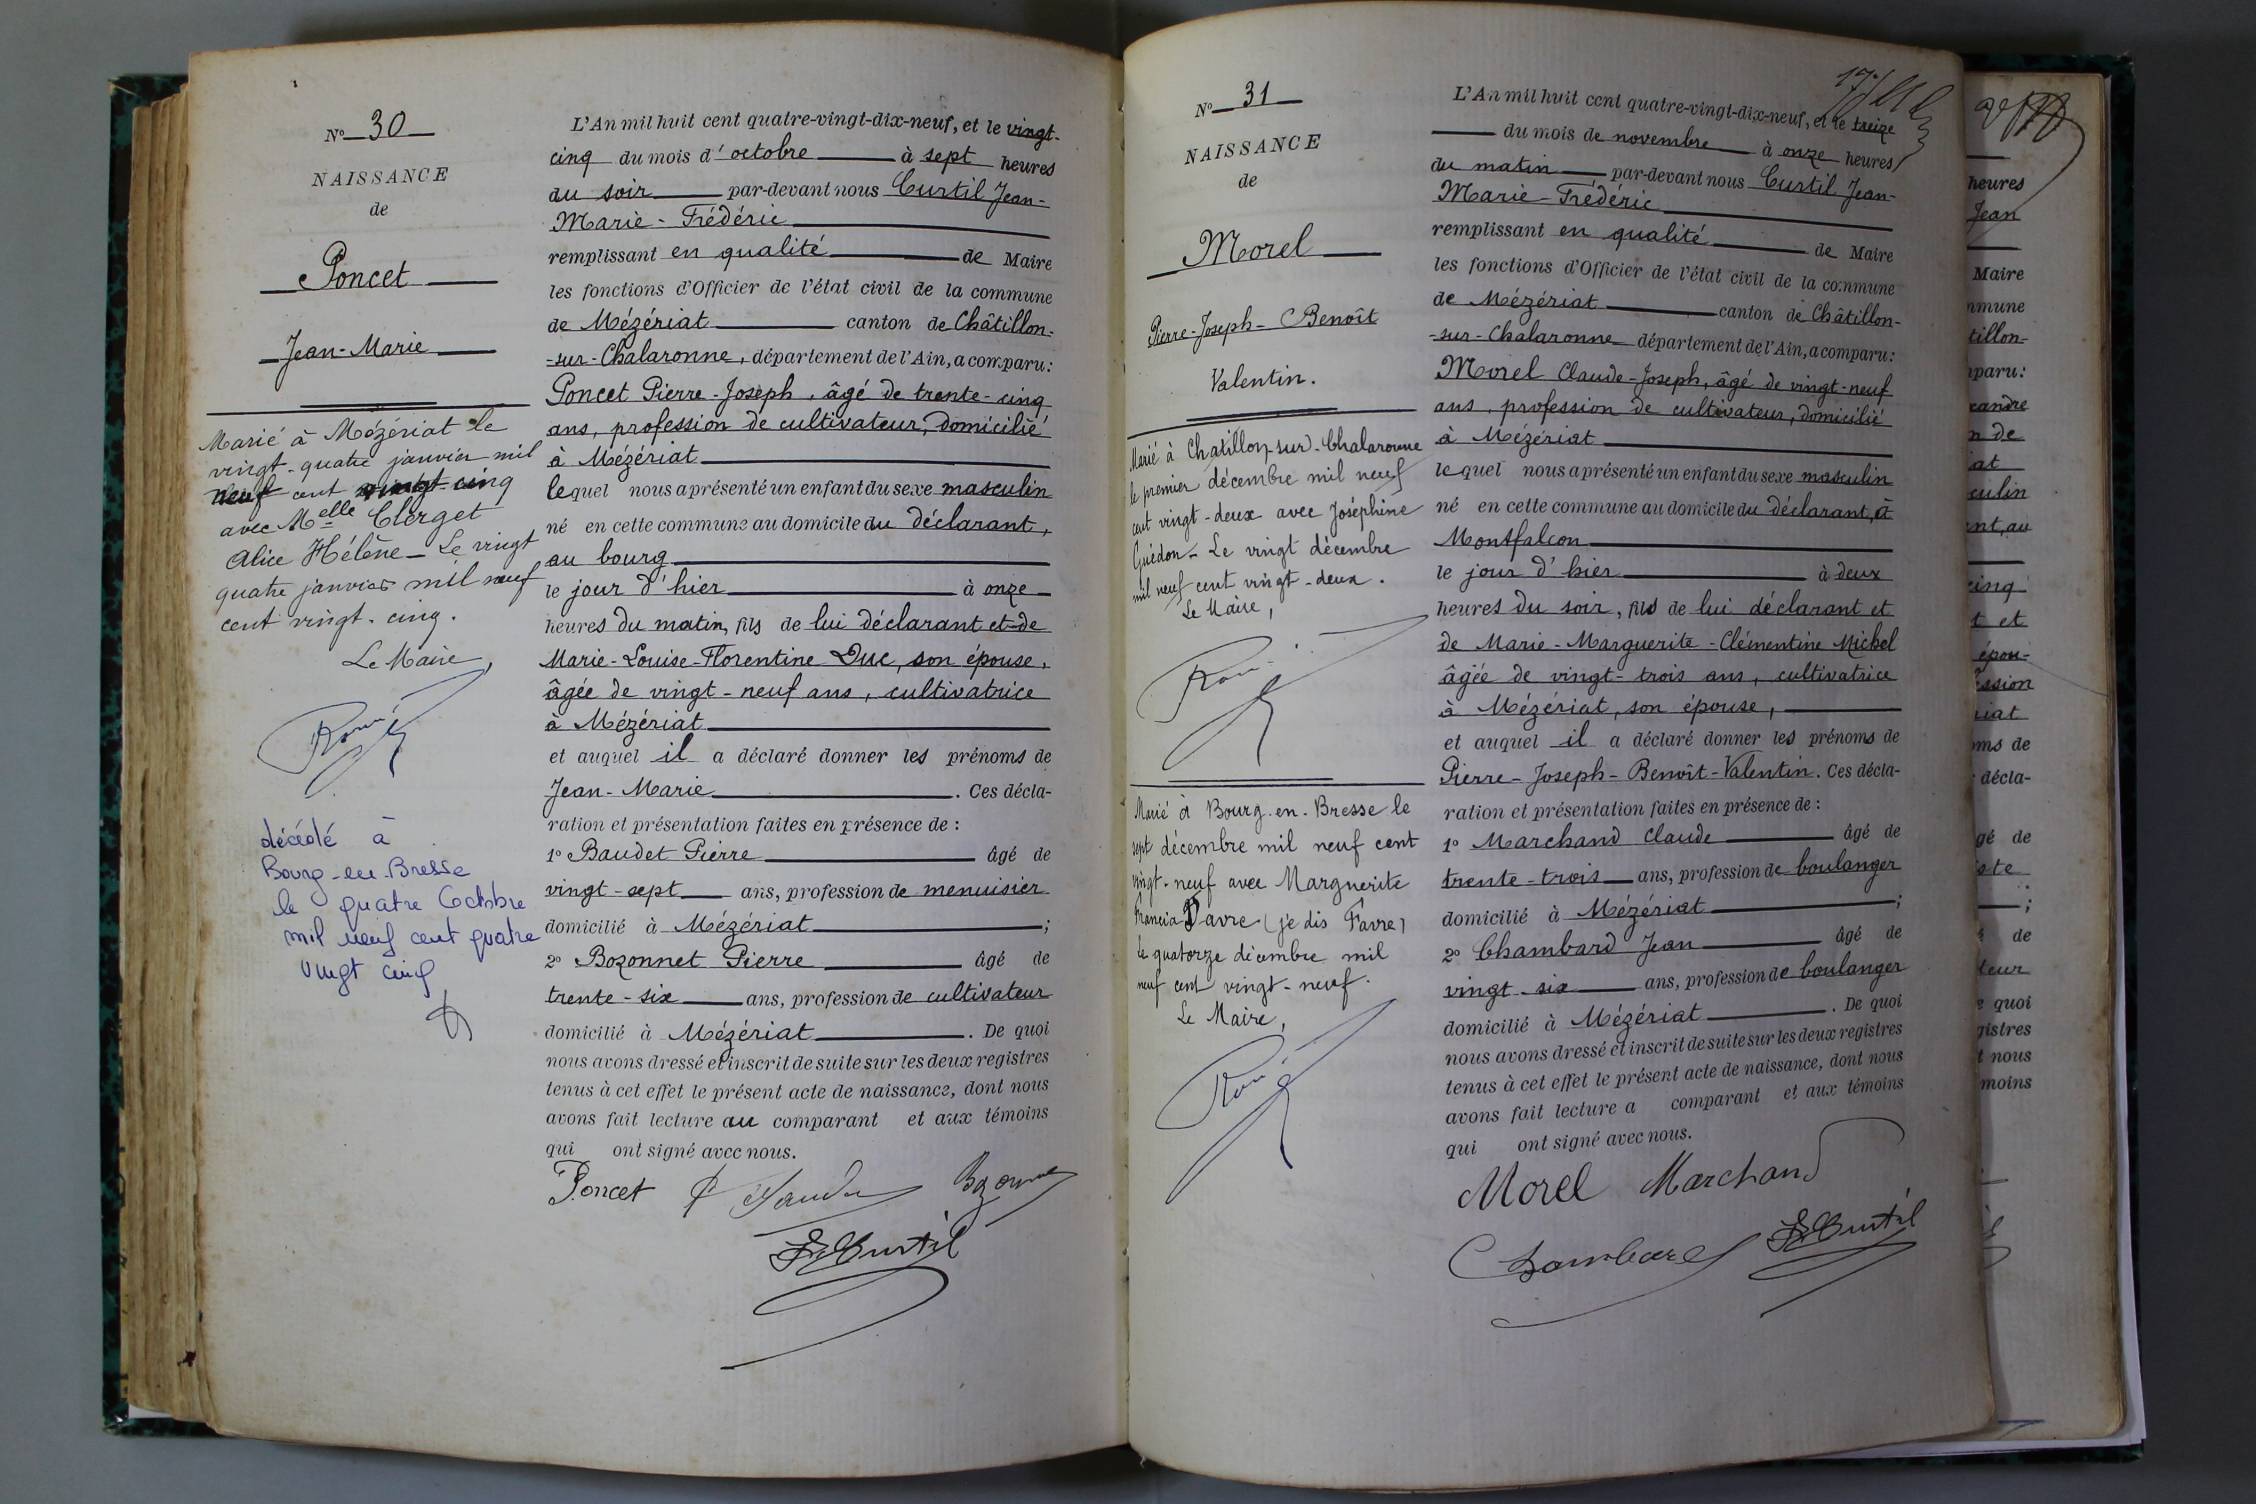 N° 30
NAISSANCE
de
Poncet
Jean-Marie
Marié à Mézériat le
vingt-quatre janvier mil
neuf cent vingt-cinq
avec Melle Clerget
Alice Hélène - Le vingt
quatre janvier mil neuf
cent vingt-cinq.
Le Maire,
décédé à
Bourg-en-Bresse
le quatre Octobre
mil neuf cent quatre
vingt cinq
L'An mil huit cent quatre-vingt-dix-neuf, et le vingt-
cinq du mois d'octobre à sept heures
du soir par-devant nous Curtil Jean-
Marie-Frédéric
remplissant en qualité de Maire
les fonctions d'Officier de l'état civil de la commune
de Mézériat canton de Châtillon-
-sur-Chalaronne, département de l'Ain, a comparu:
Poncet Pierre-Joseph, âgé de trente-cinq
ans, profession de cultivateur, domicilié
à Mézériat
lequel nous a présenté un enfant du sexe masculin
né en cette commune au domicile du déclarant,
au bourg
le jour d'hier à onze
heures du matin, fils de lui déclarant et de
Marie-Louise-Florentine Duc, son épouse,
âgée de vingt-neuf ans, cultivatrice
à Mézériat
et auquel il a déclaré donner les prénoms de
Jean-Marie. Ces décla-
ration et présentation faites en présence de :
1° Baudet Pierre âgé de
vingt-sept ans, profession de menuisier
domicilié à Mézériat ;
2° Bozonnet Pierre âgé de
trente-six ans, profession de cultivateur
domicilié à Mézériat. De quoi
nous avons dressé et inscrit de suite sur les deux registres
tenus à cet effet le présent acte de naissance, dont nous
avons fait lecture au comparant et aux témoins
qui ont signé avec nous.
Poncet
Curtil
N° 31
NAISSANCE
de
Morel
Pierre-Joseph-Benoît
Valentin.
Marié à Chatillon-sur-Chalaronne
le premier décembre mil neuf
cent vingt-deux avec Joséphine
Guédon - Le vingt décembre
mil neuf cent vingt-deux.
Le Maire,
Marié à Bourg-en-Bresse le
sept décembre mil neuf cent
vingt-neuf avec Marguerite
Francia Davre (je dis Favre)
le quatorze décembre mil
neuf cent vingt-neuf.
Le Maire,
L'An mil huit cent quatre-vingt-dix-neuf, et le treize
du mois de novembre à onze heures
du matin par-devant nous Curtil Jean-
Marie-Frédéric
remplissant en qualité de Maire
les fonctions d'Officier de l'état civil de la commune
de Mézériat canton de Châtillon-
-sur-Chalaronne département de l'Ain, a comparu:
Morel Claude-Joseph, âgé de vingt-neuf
ans, profession de cultivateur, domicilié
à Mézériat
lequel nous a présenté un enfant du sexe masculin
né en cette commune au domicile du déclarant, à
Montfalcon
le jour d'hier à deux
heures du soir, fils de lui déclarant et
de Marie-Marguerite-Clémentine Michel
âgée de vingt-trois ans, cultivatrice
à Mézériat, son épouse,
et auquel il a déclaré donner les prénoms de
Pierre-Joseph-Benoît-Valentin. Ces décla-
ration et présentation faites en présence de :
1° Marchand Claude âgé de
trente-trois ans, profession de boulanger
domicilié à Mézériat ;
2° Chambard Jean âgé de
vingt-six ans, profession de boulanger
domicilié à Mézériat. De quoi
nous avons dressé et inscrit de suite sur les deux registres
tenus à cet effet le présent acte de naissance, dont nous
avons fait lecture a comparant et aux témoins
qui ont signé avec nous.
Morel Marchand
Chambard Curtil
heures
Jean
Maire
mmune
tillon-
paru:
de
culin
cinq
et
épou-
ssion
ms de
décla-
gé de
;
de
teur
quoi
gistres
nous
moins